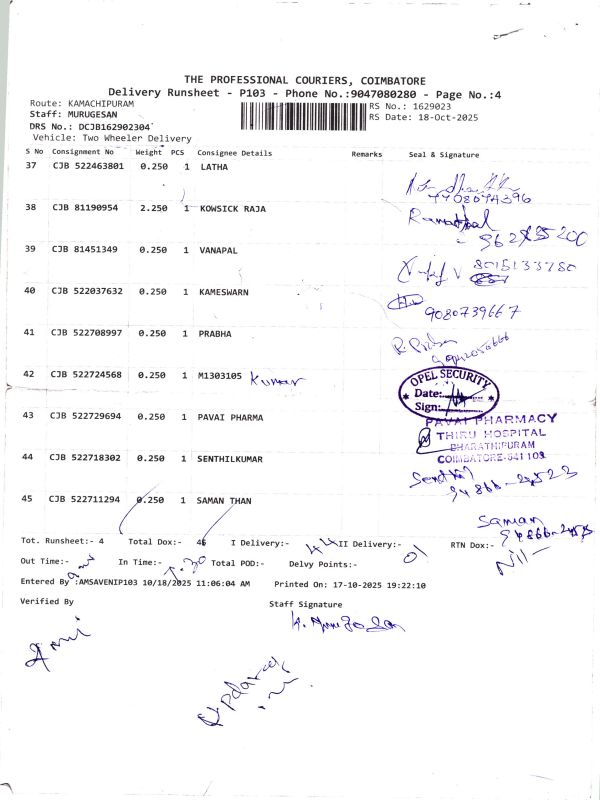 THE PROFESSIONAL COURIERS, COIMBATORE
Delivery Runsheet - P103 - Phone No.:9047080280 - Page No.:4
Route: KAMACHIPURAM
RS No.: 1629023
Staff: MURUGESAN
RS Date: 18-Oct-2025
DRS No.: DCJB162902304
Vehicle: Two Wheeler Delivery
S No Consignment No Weight PCS Consignee Details Remarks Seal & Signature
37 CJB 522463801 0.250 1 LATHA
38 CJB 81190954 2.250 1 KOWSICK RAJA
39 CJB 81451349 0.250 1 VANAPAL
8015133780
40 CJB 522037632 0.250 1 KAMESWARN
9080739667
41 CJB 522708997 0.250 1 PRABHA
42 CJB 522724568 0.250 1 M1303105 Kumar
OPEL SECURITY
Date:
Sign:
43 CJB 522729694 0.250 1 PAVAI PHARMA
PAVAI PHARMACY
THIRU HOSPITAL
BHARATHIPURAM
COIMBATORE-641 103
44 CJB 522718302 0.250 1 SENTHILKUMAR
45 CJB 522711294 0.250 1 SAMAN THAN
Saman
Tot. Runsheet:- 4 Total Dox:- 45 I Delivery:- 44 II Delivery:- 01 RTN Dox:- Nil-
Out Time:- In Time:- Total POD:- Delvy Points:-
Entered By :AMSAVENIP103 10/18/2025 11:06:04 AM Printed On: 17-10-2025 19:22:10
Verified By Staff Signature